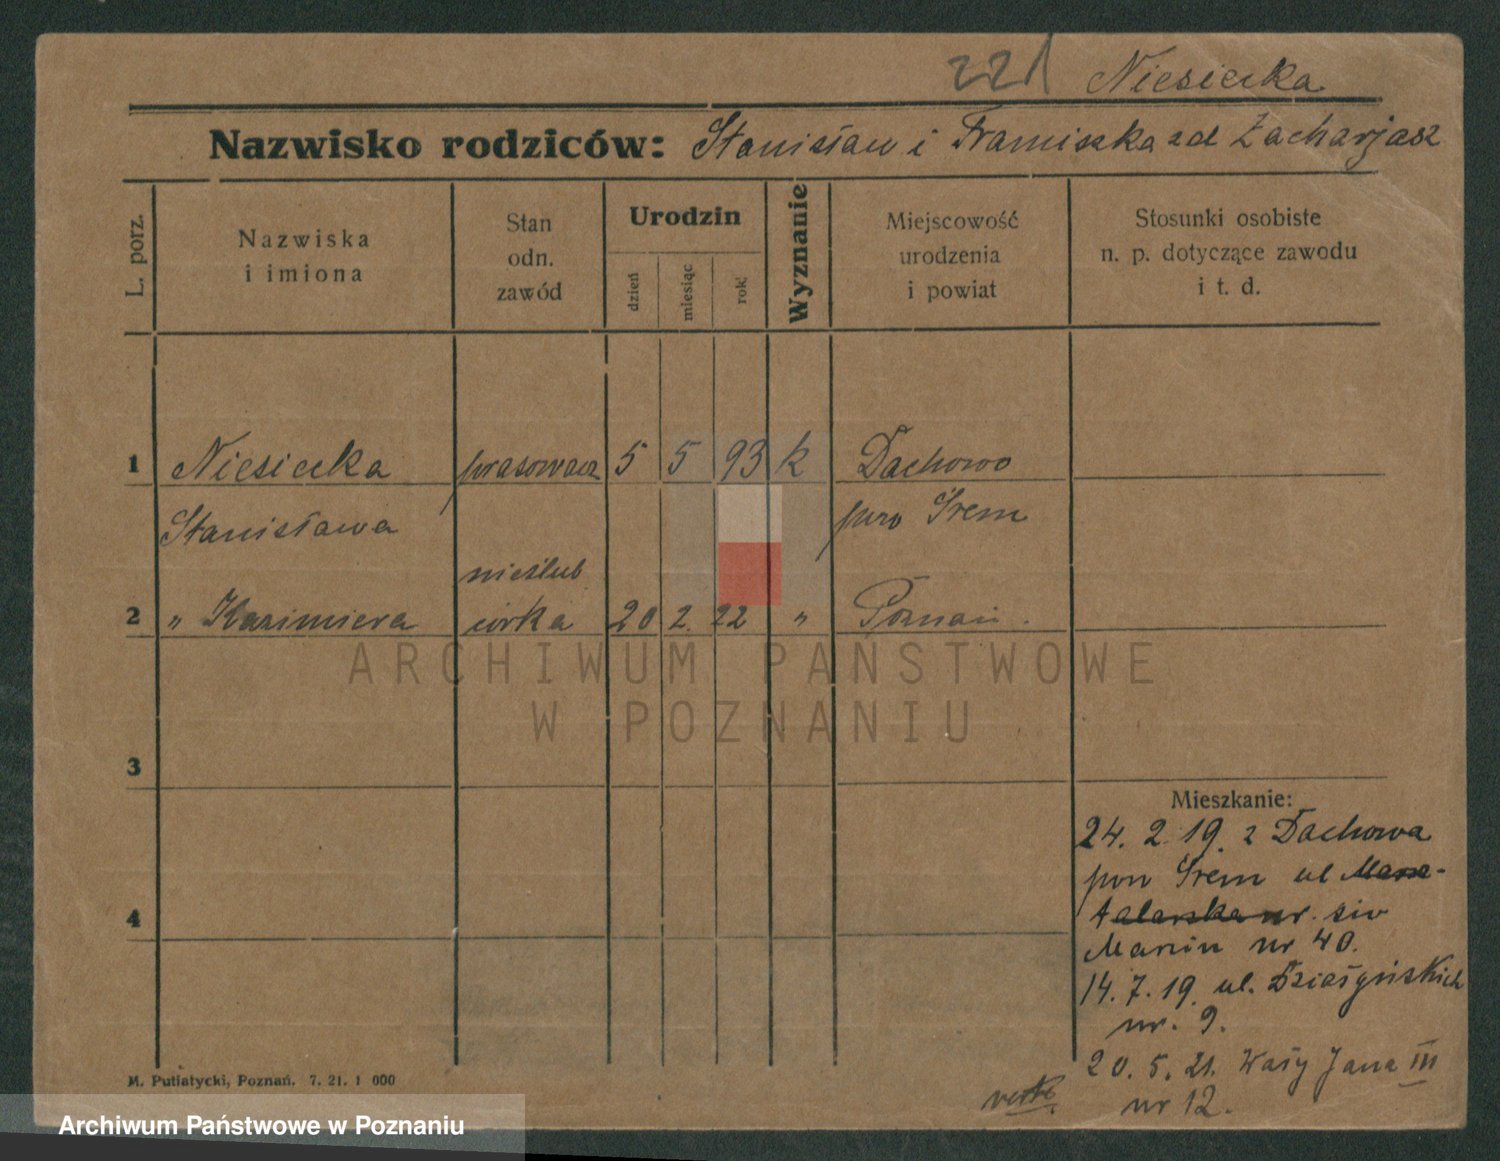 221 Niesiecka
Nazwisko rodziców: Stanisław i Franciszka zd Zacharjasz
L. porz.
Nazwiska
i imiona
Stan
odn.
zawód
Urodzin
dzień
miesiąc
rok
Wyznanie
Miejscowość
urodzenia
i powiat
Stosunki osobiste
n. p. dotyczące zawodu
i t. d.
1 Niesiecka prasowacz 5 5 93 k Dachowo
Stanisława pow Śrem
nieślub
2 " Kazimiera córka 20 2. 22 " Poznań.
ARCHIWUM PAŃSTWOWE
W POZNANIU
3
Mieszkanie:
24. 2. 19. z Dachowa
pow Śrem ul
4
nr.
Marcin nr 40.
14. 7. 19. ul. Działyńskich
nr. 9.
20. 5. 21. Wały Jana III
nr 12.
verte.
M. Putiatycki, Poznań. 7. 21. 1 000
Archiwum Państwowe w Poznaniu